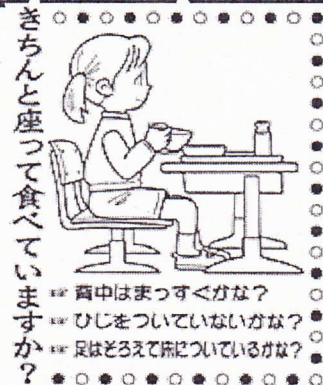 きちんと座って食べていますか？
☞ 背中はまっすぐかな？
☞ ひじをついていないかな？
☞ 足はそろえて床についているかな？